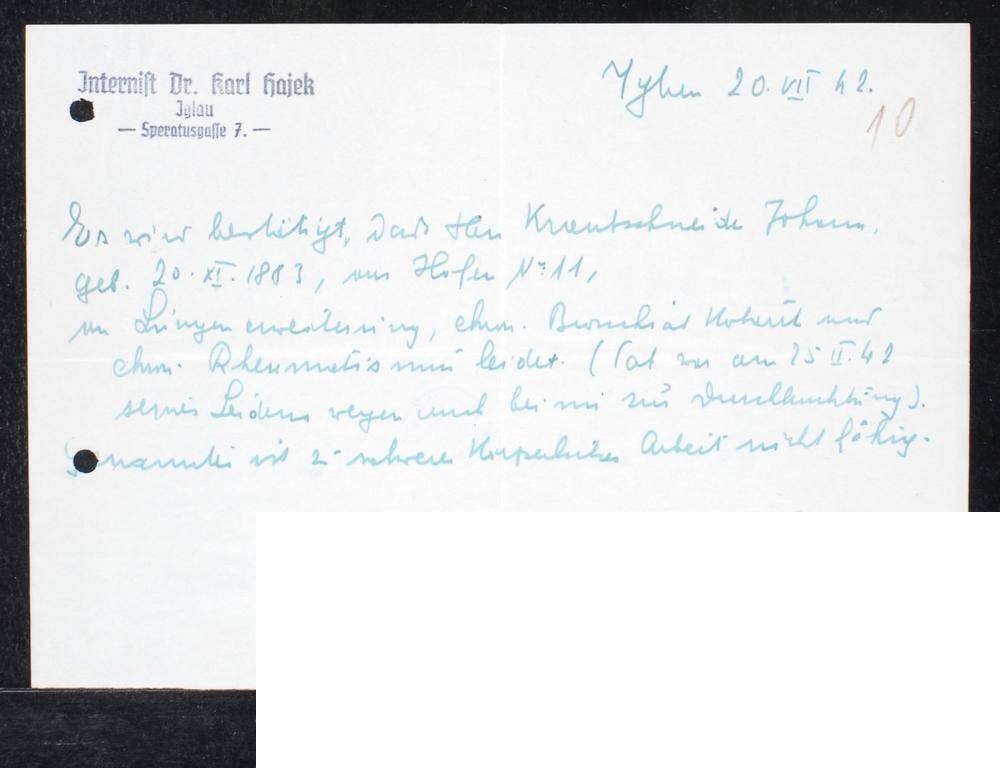 Internist Dr. Karl Hajek
Iglau
— Speratusgasse 7. —
Iglau 20. VII 42.
10
Es wird bestätigt, daß Herr Krautschneider Johann,
geb. 20. XI. 1883, aus Hofen Nº 11,
an Lungenerweiterung, chron. Bronchial Katarrh und
chron. Rheumatismus leidet. (Pat war am 25 II. 42
seines Leidens wegen auch bei mir zur Durchleuchtung).
Genannter ist zu schwerer körperlicher Arbeit nicht fähig.